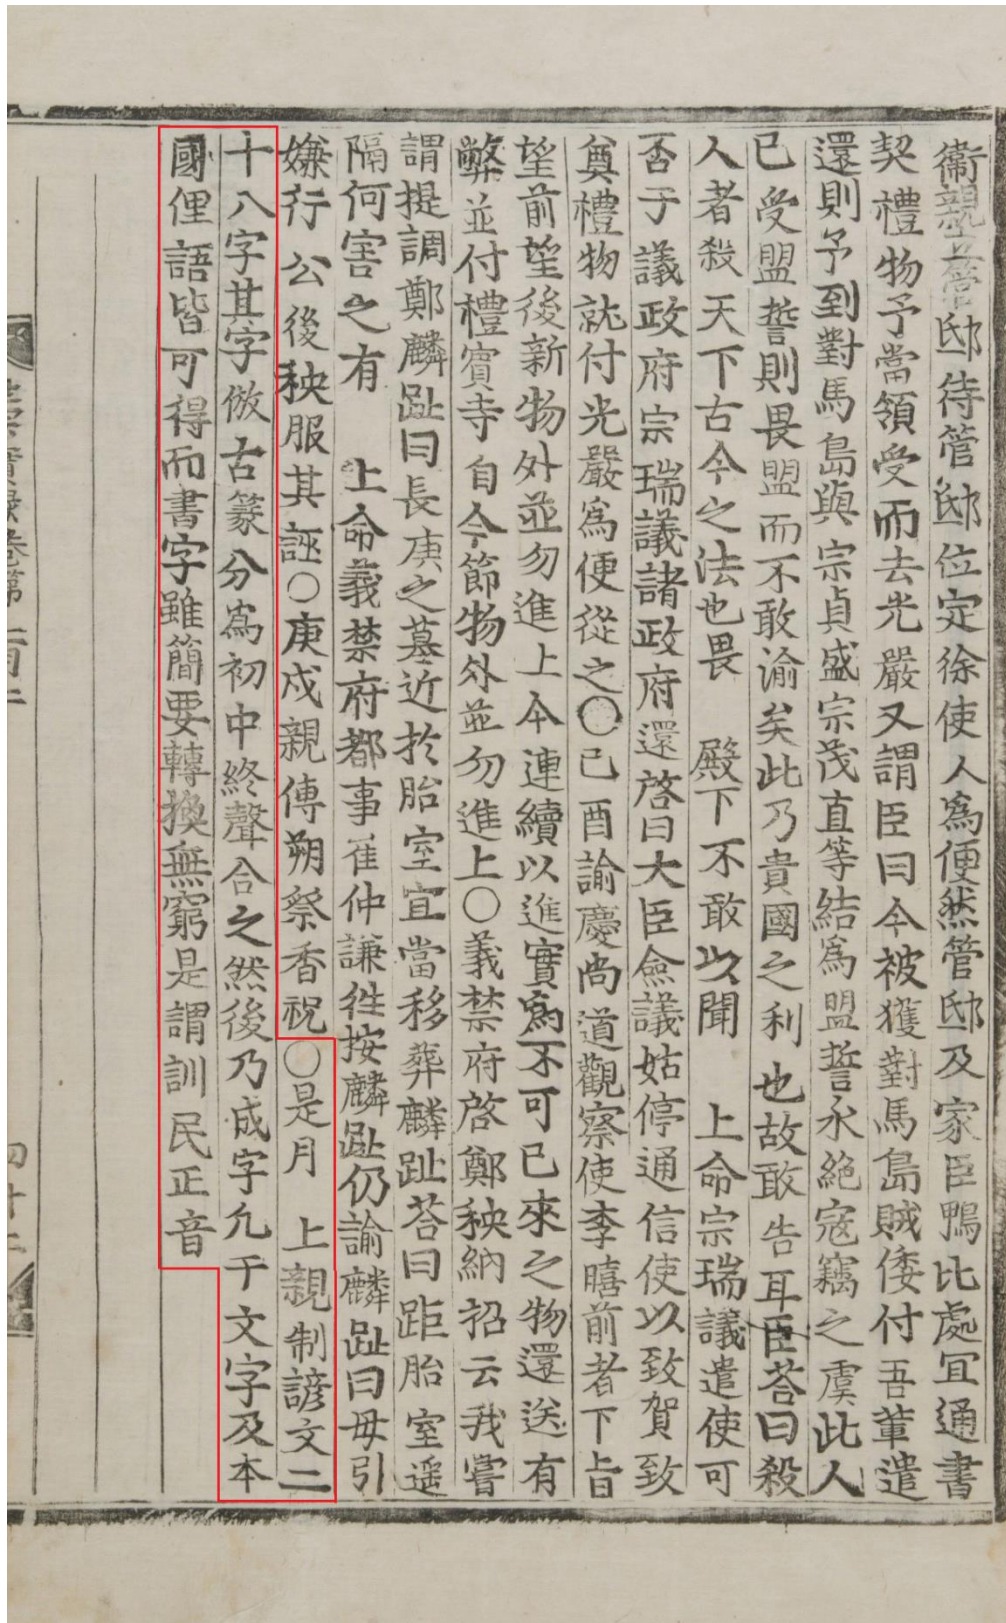 衞親書管邸待管邸位定徐使人爲便然管邸及家臣鴨比處宜通書
契禮物予當領受而去光嚴又謂臣曰今被獲對馬島賊倭付吾輩遣
還則予到對馬島與宗貞盛宗茂直等結爲盟誓永絶寇竊之虞此人
已受盟誓則畏盟而不敢渝矣此乃貴國之利也故敢告耳臣荅曰殺
人者殺天下古今之法也畏 殿下不敢以聞 上命宗瑞議遣使可
否于議政府宗瑞議諸政府還啓曰大臣僉議姑停通信使以致賀致
奠禮物就付光嚴爲便從之〇己酉諭慶尙道觀察使李暿前者下旨
望前望後新物外並勿進上今連續以進實爲不可已來之物還送有
弊並付禮賓寺自今節物外並勿進上〇義禁府啓鄭秧納招云我嘗
謂提調鄭麟趾曰長庚之墓近於胎室宜當移葬麟趾荅曰距胎室遥
隔何害之有 上命義禁府都事崔仲謙徃按麟趾仍諭麟趾曰毋引
嫌行公後秧服其誣〇庚戌親傳朔祭香祝〇是月 上親制諺文二
十八字其字倣古篆分爲初中終聲合之然後乃成字凡干文字及本
國俚語皆可得而書字雖簡要轉換無窮是謂訓民正音